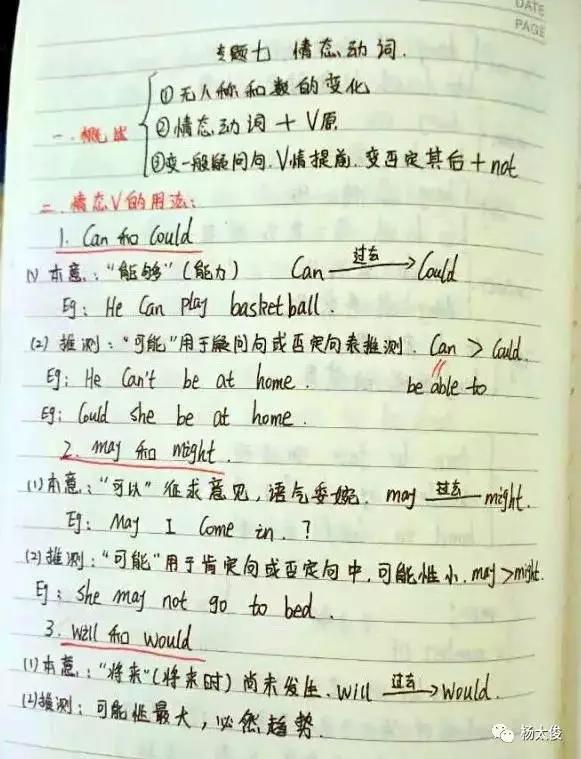 DATE
PAGE
专题七 情态动词.
一.概述
①无人称和数的变化
②情态动词+V原
③变一般疑问句.V情提前.变否定其后+not
二.情态V的用法:
1. Can 和 Could
(1) 本意:"能够"(能力) Can 过去→ Could
Eg: He can play basketball.
(2) 推测:"可能"用于疑问句或否定句来推测. Can > Could.
Eg: He can't be at home. be able to
Eg: Could she be at home.
2. may 和 might.
(1)本意:"可以"征求意见,语气委婉. may 过去→ might.
Eg: May I come in.?
(2)推测:"可能"用于肯定句或否定句中,可能性小. may>might.
Eg: She may not go to bed.
3. Will 和 would
(1)本意:"将来"(将来时)尚未发生. will 过去→ would.
(2)推测:可能性最大,必然趋势.
杨太俊